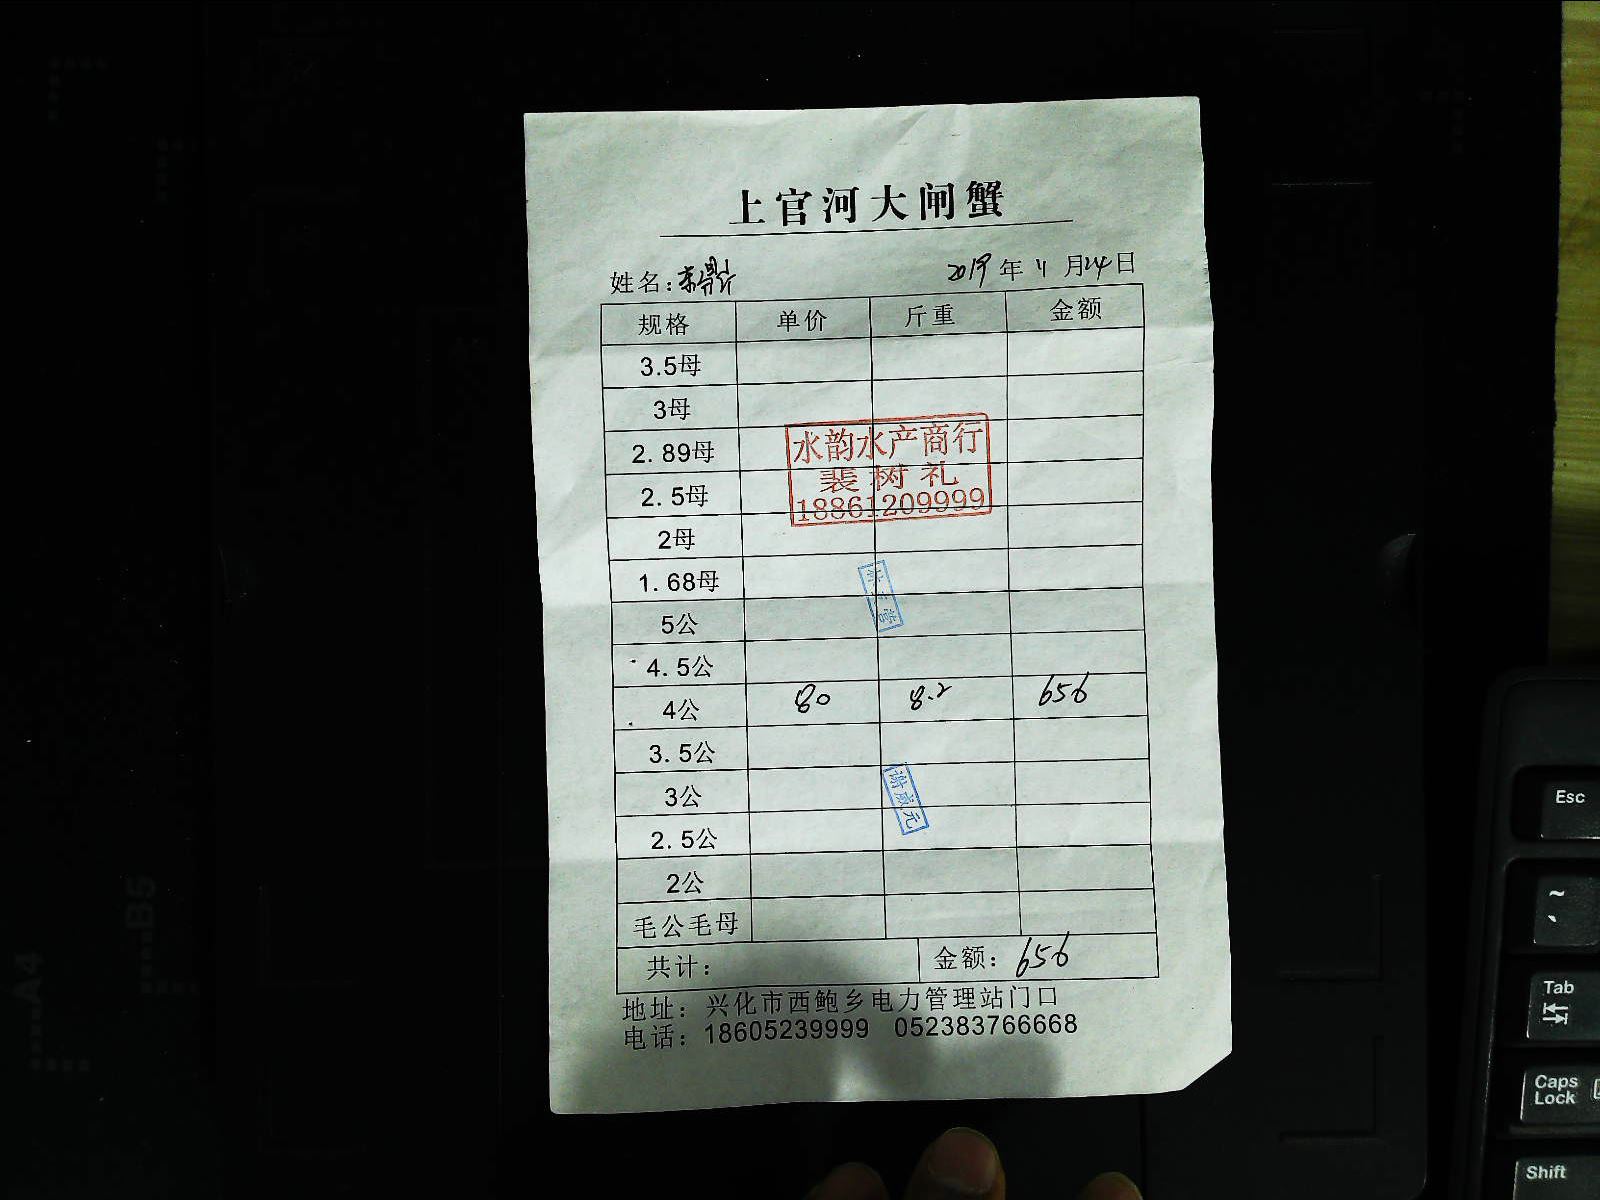 上官河大闸蟹
姓名：
2019年11月24日
规格 单价 斤重 金额
3.5母
3母
2.89母
2.5母
2母
1.68母
5公
4.5公
4公 80 8.2 656
3.5公
3公
2.5公
2公
毛公毛母
共计： 金额：656
地址：兴化市西鲍乡电力管理站门口
电话：18605239999 052383766668
水韵水产商行
裴树礼
18861209999
谢成元
Esc
~
Tab
Caps
Lock
Shift
B5
A4